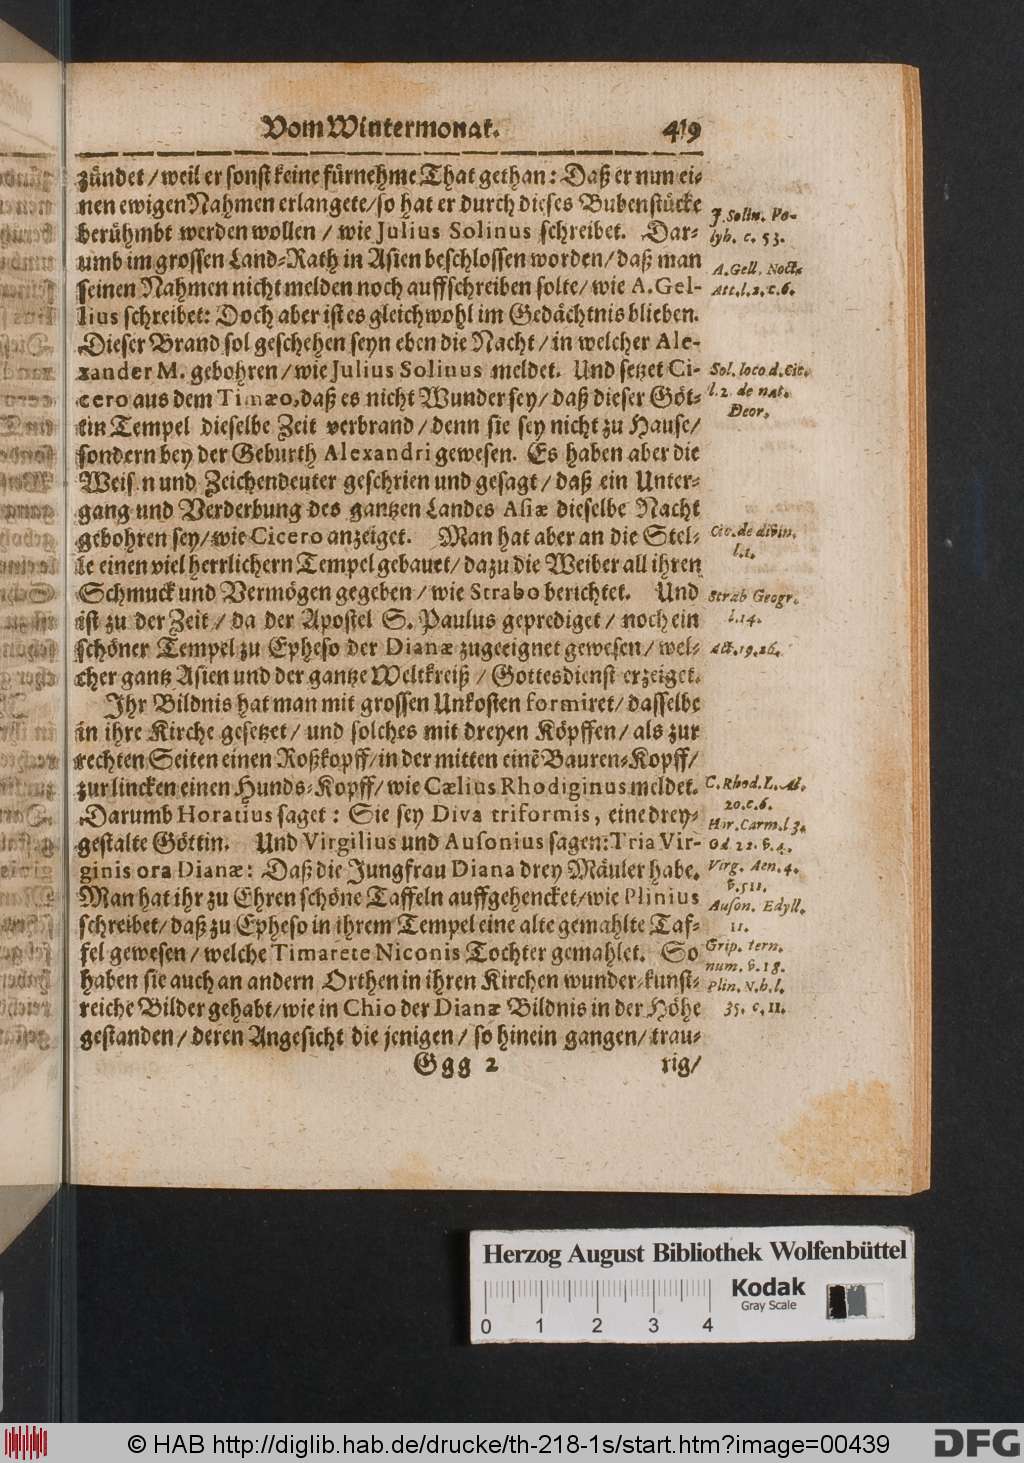 Vom Wintermonat. 419
zündet / weil er sonst keine fürnehme That gethan: Daß er nun ei-
nen ewigen Nahmen erlangete / so hat er durch dieses Bubenstücke
berühmbt werden wollen / wie Julius Solinus schreibet. Dar-
umb im grossen Land-Rath in Asien beschlossen worden / daß man
seinen Nahmen nicht melden noch auffschreiben solte / wie A. Gel-
lius schreibet: Doch aber ist es gleichwohl im Gedächtnis blieben.
Dieser Brand sol geschehen seyn eben die Nacht / in welcher Ale-
xander M. gebohren / wie Julius Solinus meldet. Und setzet Ci-
cero aus dem Timæo, daß es nicht Wunder sey / daß dieser Göt-
tin Tempel dieselbe Zeit verbrand / denn sie sey nicht zu Hause /
sondern bey der Geburth Alexandri gewesen. Es haben aber die
Weisen und Zeichendeuter geschrien und gesagt / daß ein Unter-
gang und Verderbung des gantzen Landes Asiæ dieselbe Nacht
gebohren sey / wie Cicero anzeiget. Man hat aber an die Stel-
le einen viel herrlichern Tempel gebauet / dazu die Weiber all ihren
Schmuck und Vermögen gegeben / wie Strabo berichtet. Und
ist zu der Zeit / da der Apostel S. Paulus geprediget / noch ein
schöner Tempel zu Epheso der Dianæ zugeeignet gewesen / wel-
cher gantz Asien und der gantze Weltkreiß / Gottesdienst erzeiget.
Ihr Bildnis hat man mit grossen Unkosten formiret / dasselbe
in ihre Kirche gesetzet / und solches mit dreyen Köpffen / als zur
rechten Seiten einen Roßkopff / in der mitten einē Bauren-Kopff /
zur lincken einen Hunds-Kopff / wie Cælius Rhodiginus meldet.
Darumb Horatius saget: Sie sey Diva triformis, eine drey-
gestalte Göttin. Und Virgilius und Ausonius sagen: Tria Vir-
ginis ora Dianæ: Daß die Jungfrau Diana drey Mäuler habe.
Man hat ihr zu Ehren schöne Taffeln auffgehencket / wie Plinius
schreibet / daß zu Epheso in ihrem Tempel eine alte gemahlte Taf-
fel gewesen / welche Timarete Niconis Tochter gemahlet. So
haben sie auch an andern Orthen in ihren Kirchen wunder-kunst-
reiche Bilder gehabt / wie in Chio der Dianæ Bildnis in der Höhe
gestanden / deren Angesicht die jenigen / so hinein gangen / trau-
Ggg 2 rig /
J. Solin. Po-
lyh. c. 53.
A. Gell. Noct.
Att. l. 2. c. 6.
Sol. loco d. Cic.
l. 2. de nat.
Deor.
Cic. de divin.
l. 1.
Strab Geogr.
l. 14.
Act. 19. 26.
C. Rhod. L. A.
20. c. 6.
Hor. Carm. l 3.
Od 22. v. 4.
Virg. Aen. 4.
v. 511.
Auson. Edyll.
11.
Grip. tern.
num. v. 18.
Plin. N. h. l.
35. c. 11.
Herzog August Bibliothek Wolfenbüttel
Kodak
Gray Scale
0 1 2 3 4
© HAB http://diglib.hab.de/drucke/th-218-1s/start.htm?image=00439
DFG